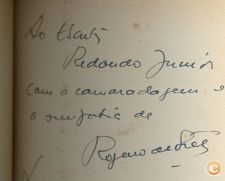 Ao
Redondo Júnior
com a camaradagem e
a simpatia de
Rogério de